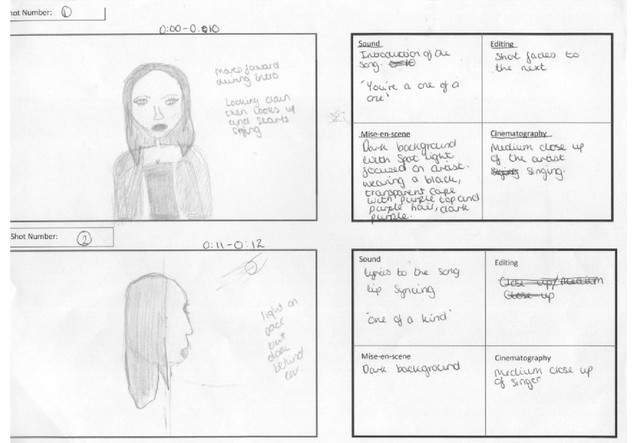 hot Number: 1
0:00-0:010
moves forward
during intro
Looking down
then looks up
and starts
singing
Sound
Introduction of the
song.
"You're a one of a
one"
Editing
Shot fades to
the next
Mise-en-scene
Dark background
with spot light
focused on artist.
wearing a black,
transparent cape
with purple top and
purple hair, dark
purple.
Cinematography
Medium close up
of the artist
singing.
Shot Number: 2
0:11-0:12
light on
face
but
dark
behind
ear.
Sound
Lyrics to the song
lip syncing
"one of a kind"
Editing
Close up/Medium
Close-up
Mise-en-scene
Dark background
Cinematography
medium close up
of singer